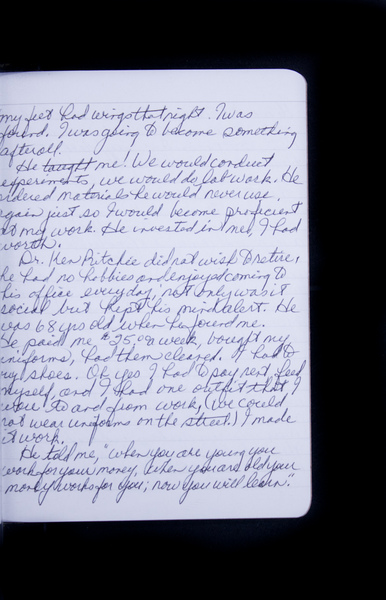 my feet had wings that night. I was
found. I was going to become something
after all.
He taught me! We would conduct
experiments, we would do lab work. He
ordered materials he would never use
again just so I would become proficient
at my work. He invested in me, I had
worth.
Dr. Ken Ritchie did not wish to retire,
he had no hobbies and enjoyed coming to
his office everyday, not only was it
social but kept his mind alert. He
was 68 yrs old when he found me.
He paid me $25.00 a week, bought my
uniforms, had them cleaned. I had to
my shoes. Oh yes I had to pay rent, feed
myself, and I had one outfit that I
wore to and from work, (we could
not wear uniforms on the street) I made
it work.
He told me, "when you are young you
work for your money, when you are old your
money works for you; now you will learn."